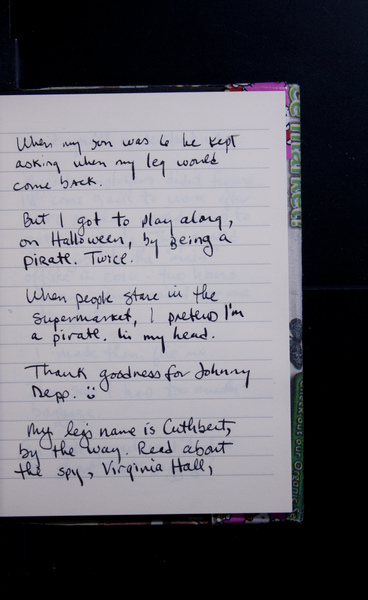 When my son was 6 he kept
asking when my leg would
come back.
But I got to play along,
on Halloween, by being a
pirate. Twice.
When people stare in the
supermarket, I pretend I'm
a pirate. In my head.
Thank goodness for Johnny
Depp.
My leg's name is Cuthbert,
by the way. Read about
the spy, Virginia Hall,